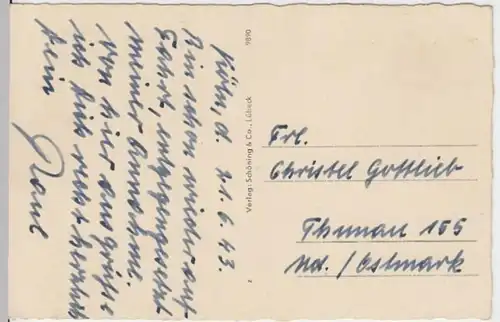 Köln, d. 21.6.43.
Bin schon wieder auf
Fahrt, entgegengesetzt
meiner Annahme.
Von hier aus grüßt
ich Dich recht herzlich
Dein
Paul
Verlag: Schöning & Co., Lübeck
9890
Frl.
Christel Gottlieb
Thunau 155
Nd./Ostmark